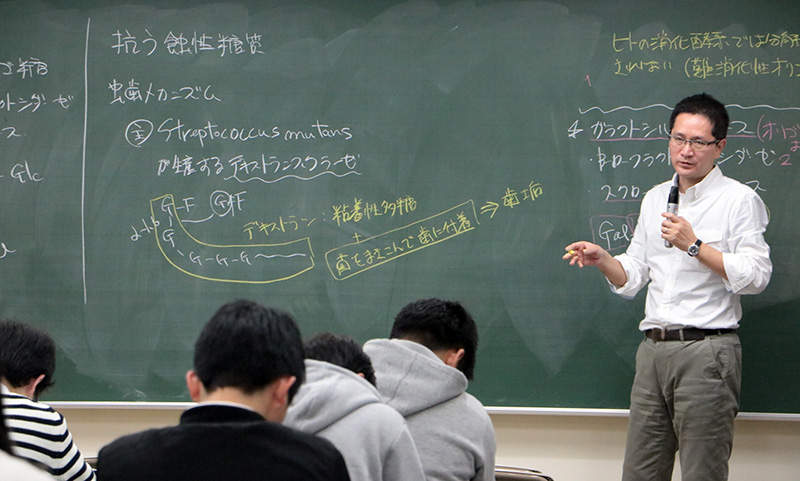 抗う蝕性糖質
虫歯メカニズム
Streptococcus mutans
が生産するデキストランスクラーゼ
G-F
G-F
α-1,6
G
G-G-G
デキストラン:粘着性多糖
+
菌をまきこんで歯に付着
⇒歯垢
糖
ンダーゼ
ス
Glc
ヒトの消化酵素では分解
されない (難消化性オリゴ
4 ガラクトシル
ス(オリゴ
・
フラクト
ンダーゼ
2
・スクロ
ス
Gal